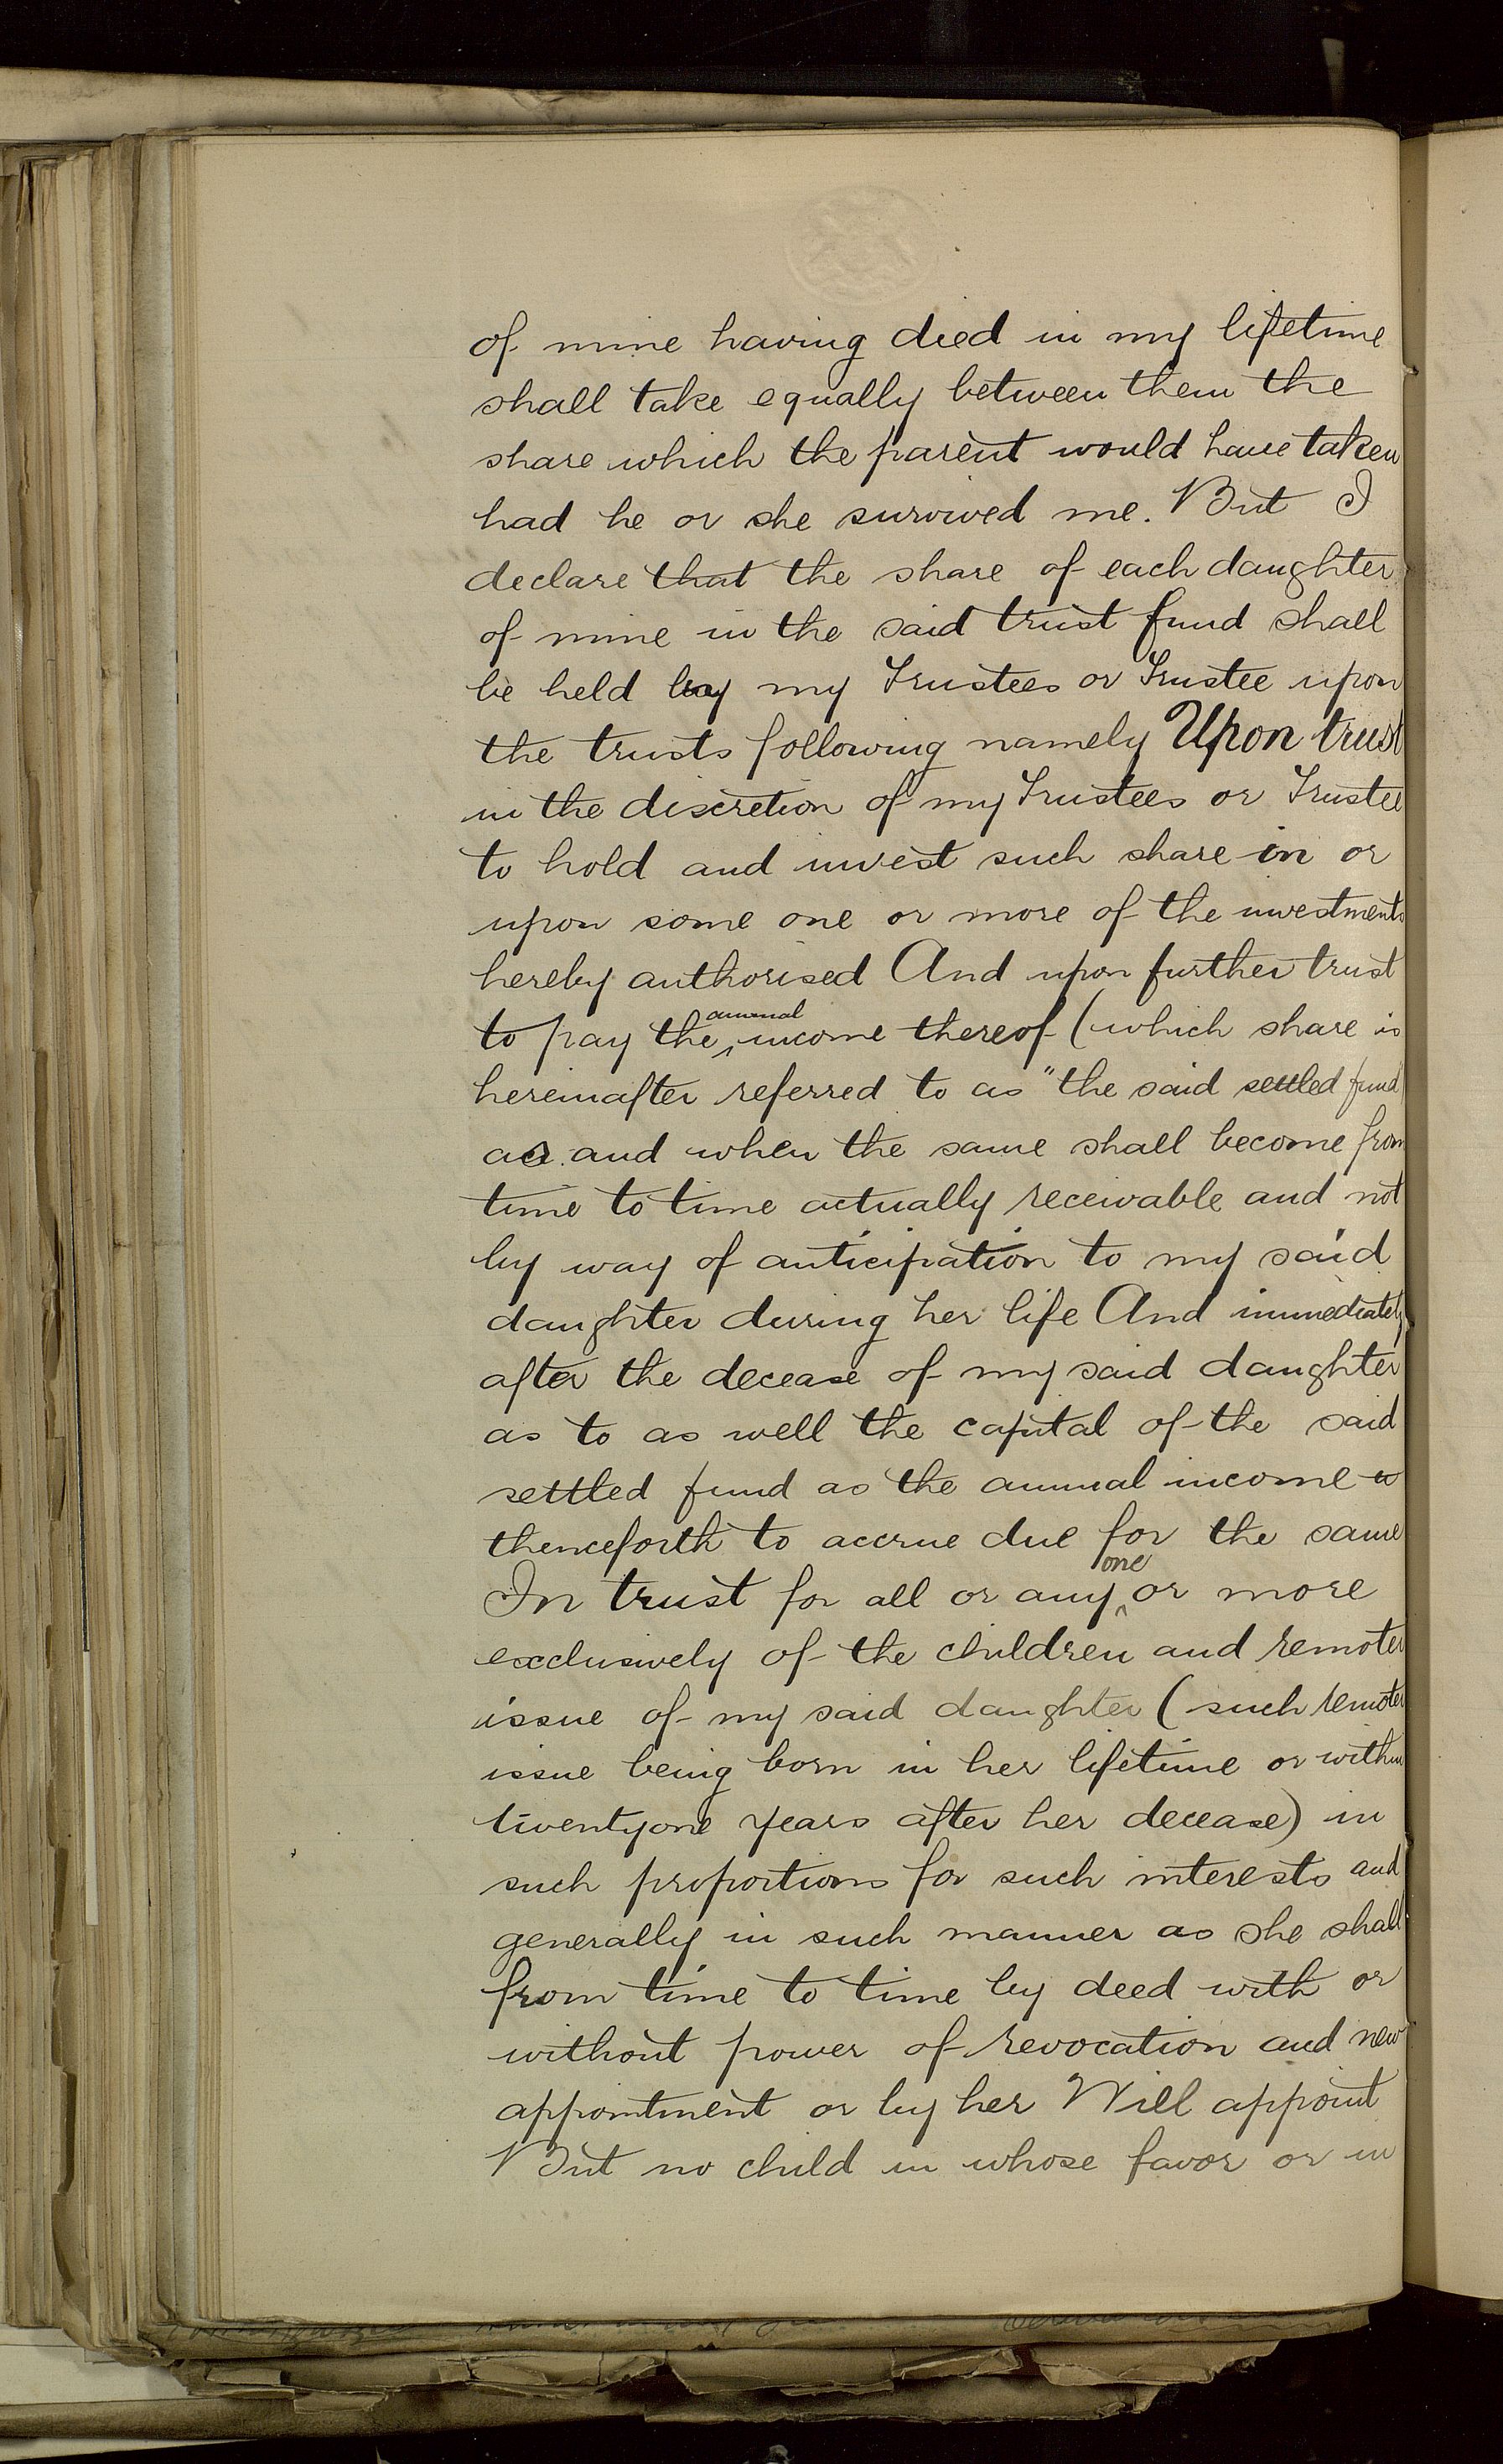 of mine having died in my lifetime
shall take equally between them the
share which the parent would have taken
had he or she survived me. But I
declare that the share of each daughter
of mine in the said trust fund shall
be held by my Trustees or Trustee upon
the trusts following namely Upon trust
in the discretion of my Trustees or Trustee
to hold and invest such share in or
upon some one or more of the investments
hereby authorised And upon further trust
to pay the annual income thereof (which share is
hereinafter referred to as "the said settled fund
as and when the same shall become from
time to time actually receivable and not
by way of anticipation to my said
daughter during her life And immediately
after the decease of my said daughter
as to as well the capital of the said
settled fund as the annual income
thenceforth to accrue due for the same
In trust for all or any one or more
exclusively of the children and remoter
issue of my said daughter (such remoter
issue being born in her lifetime or within
twentyone years after her decease) in
such proportions for such interests and
generally in such manner as she shall
from time to time by deed with or
without power of revocation and new
appointment or by her Will appoint
But no child in whose favor or in